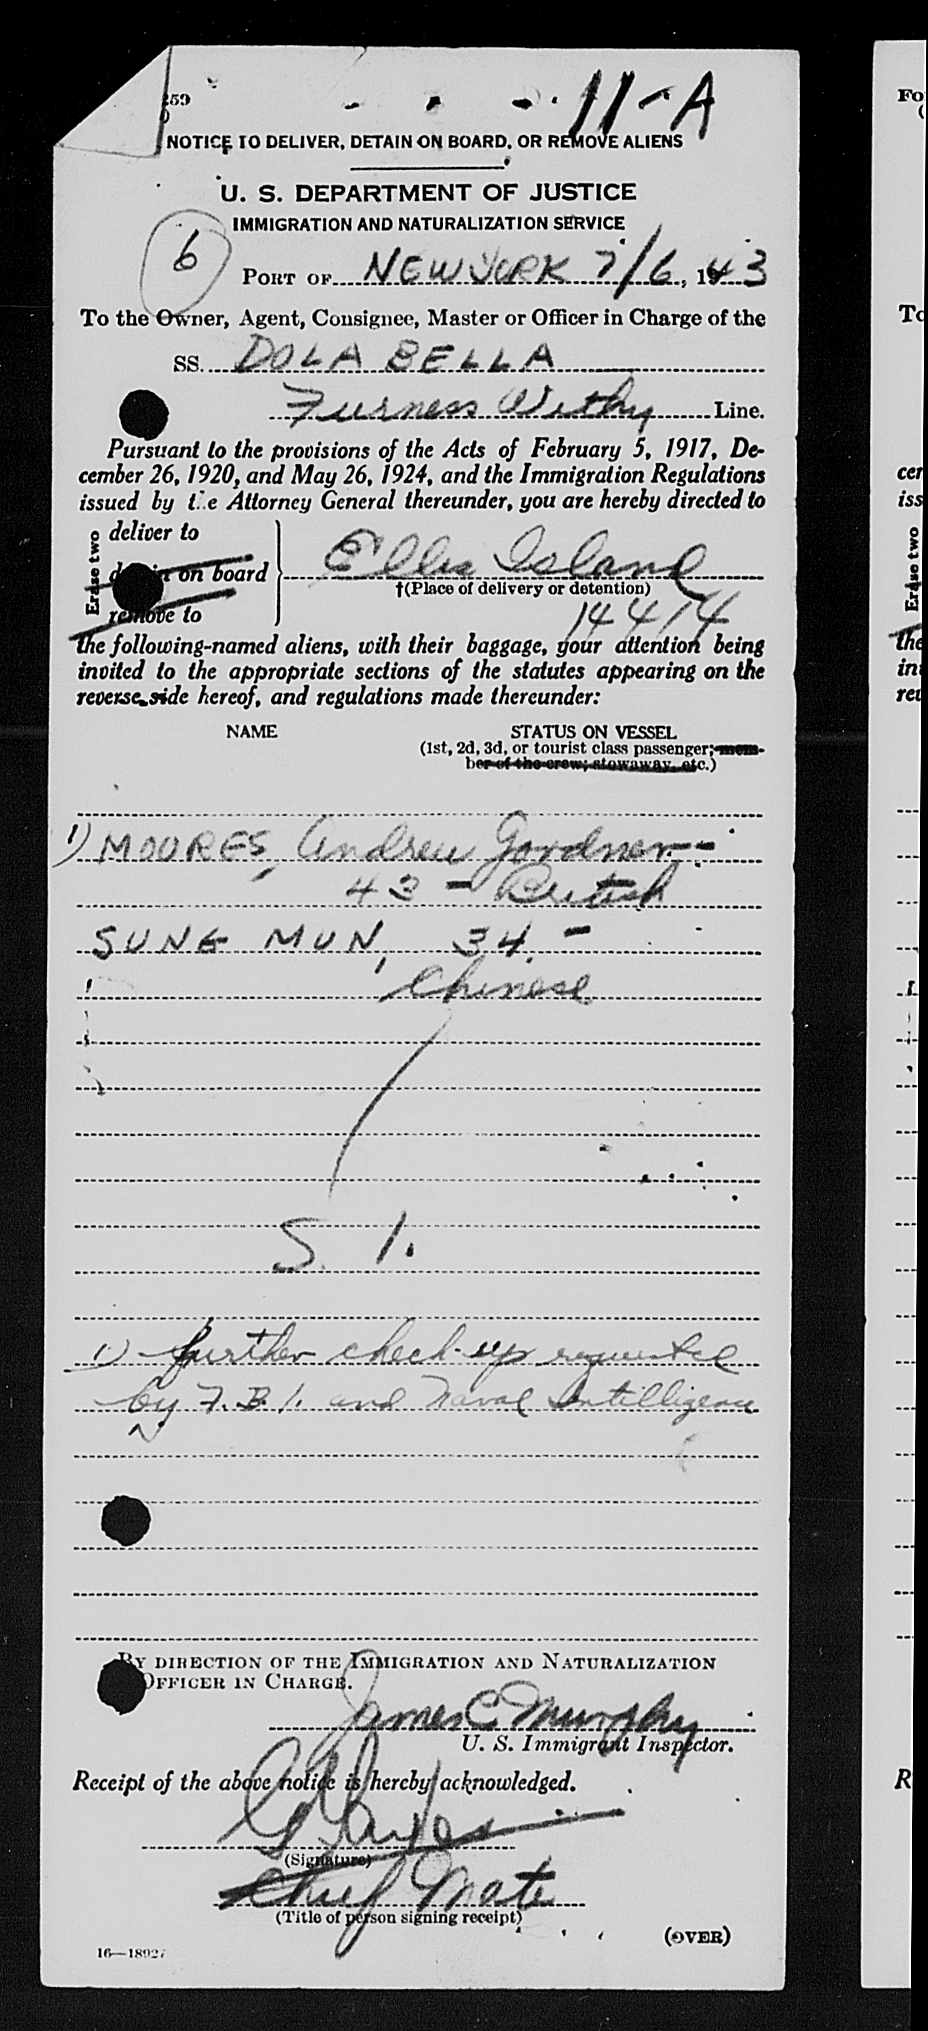 259
11-A
NOTICE TO DELIVER, DETAIN ON BOARD, OR REMOVE ALIENS
U. S. DEPARTMENT OF JUSTICE
IMMIGRATION AND NATURALIZATION SERVICE
6
PORT OF NEW YORK 7/6, 1943
To the Owner, Agent, Consignee, Master or Officer in Charge of the
SS. DOLA BELLA
Furness Withy Line.
Pursuant to the provisions of the Acts of February 5, 1917, De-
cember 26, 1920, and May 26, 1924, and the Immigration Regulations
issued by the Attorney General thereunder, you are hereby directed to
Erase two
deliver to
detain on board
remove to
Ellis Island
†(Place of delivery or detention)
14414
the following-named aliens, with their baggage, your attention being
invited to the appropriate sections of the statutes appearing on the
reverse side hereof, and regulations made thereunder:
NAME
STATUS ON VESSEL
(1st, 2d, 3d, or tourist class passenger; mem-
ber of the crew; stowaway, etc.)
1) MOORES, Andrew Gordner -
43 - British
SUNG MUN, 34 -
Chinese
S. I.
1) further check-up requested
by F.B.I. and Naval Intelligence
BY DIRECTION OF THE IMMIGRATION AND NATURALIZATION
OFFICER IN CHARGE.
James C Murphy
U. S. Immigrant Inspector.
Receipt of the above notice is hereby acknowledged.
(Signature)
Chief Mate
(Title of person signing receipt)
(OVER)
16—18927